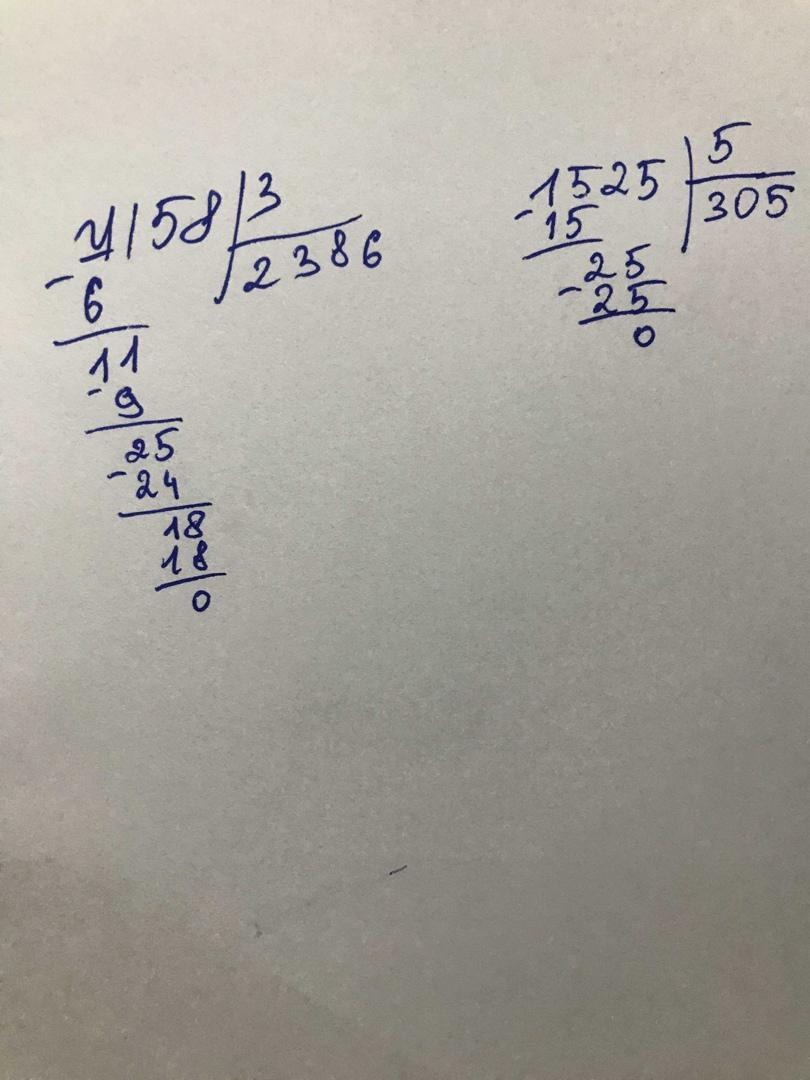 7158 3
2386
- 6
11
- 9
25
- 24
18
18
0
1525 5
305
- 15
25
- 25
0